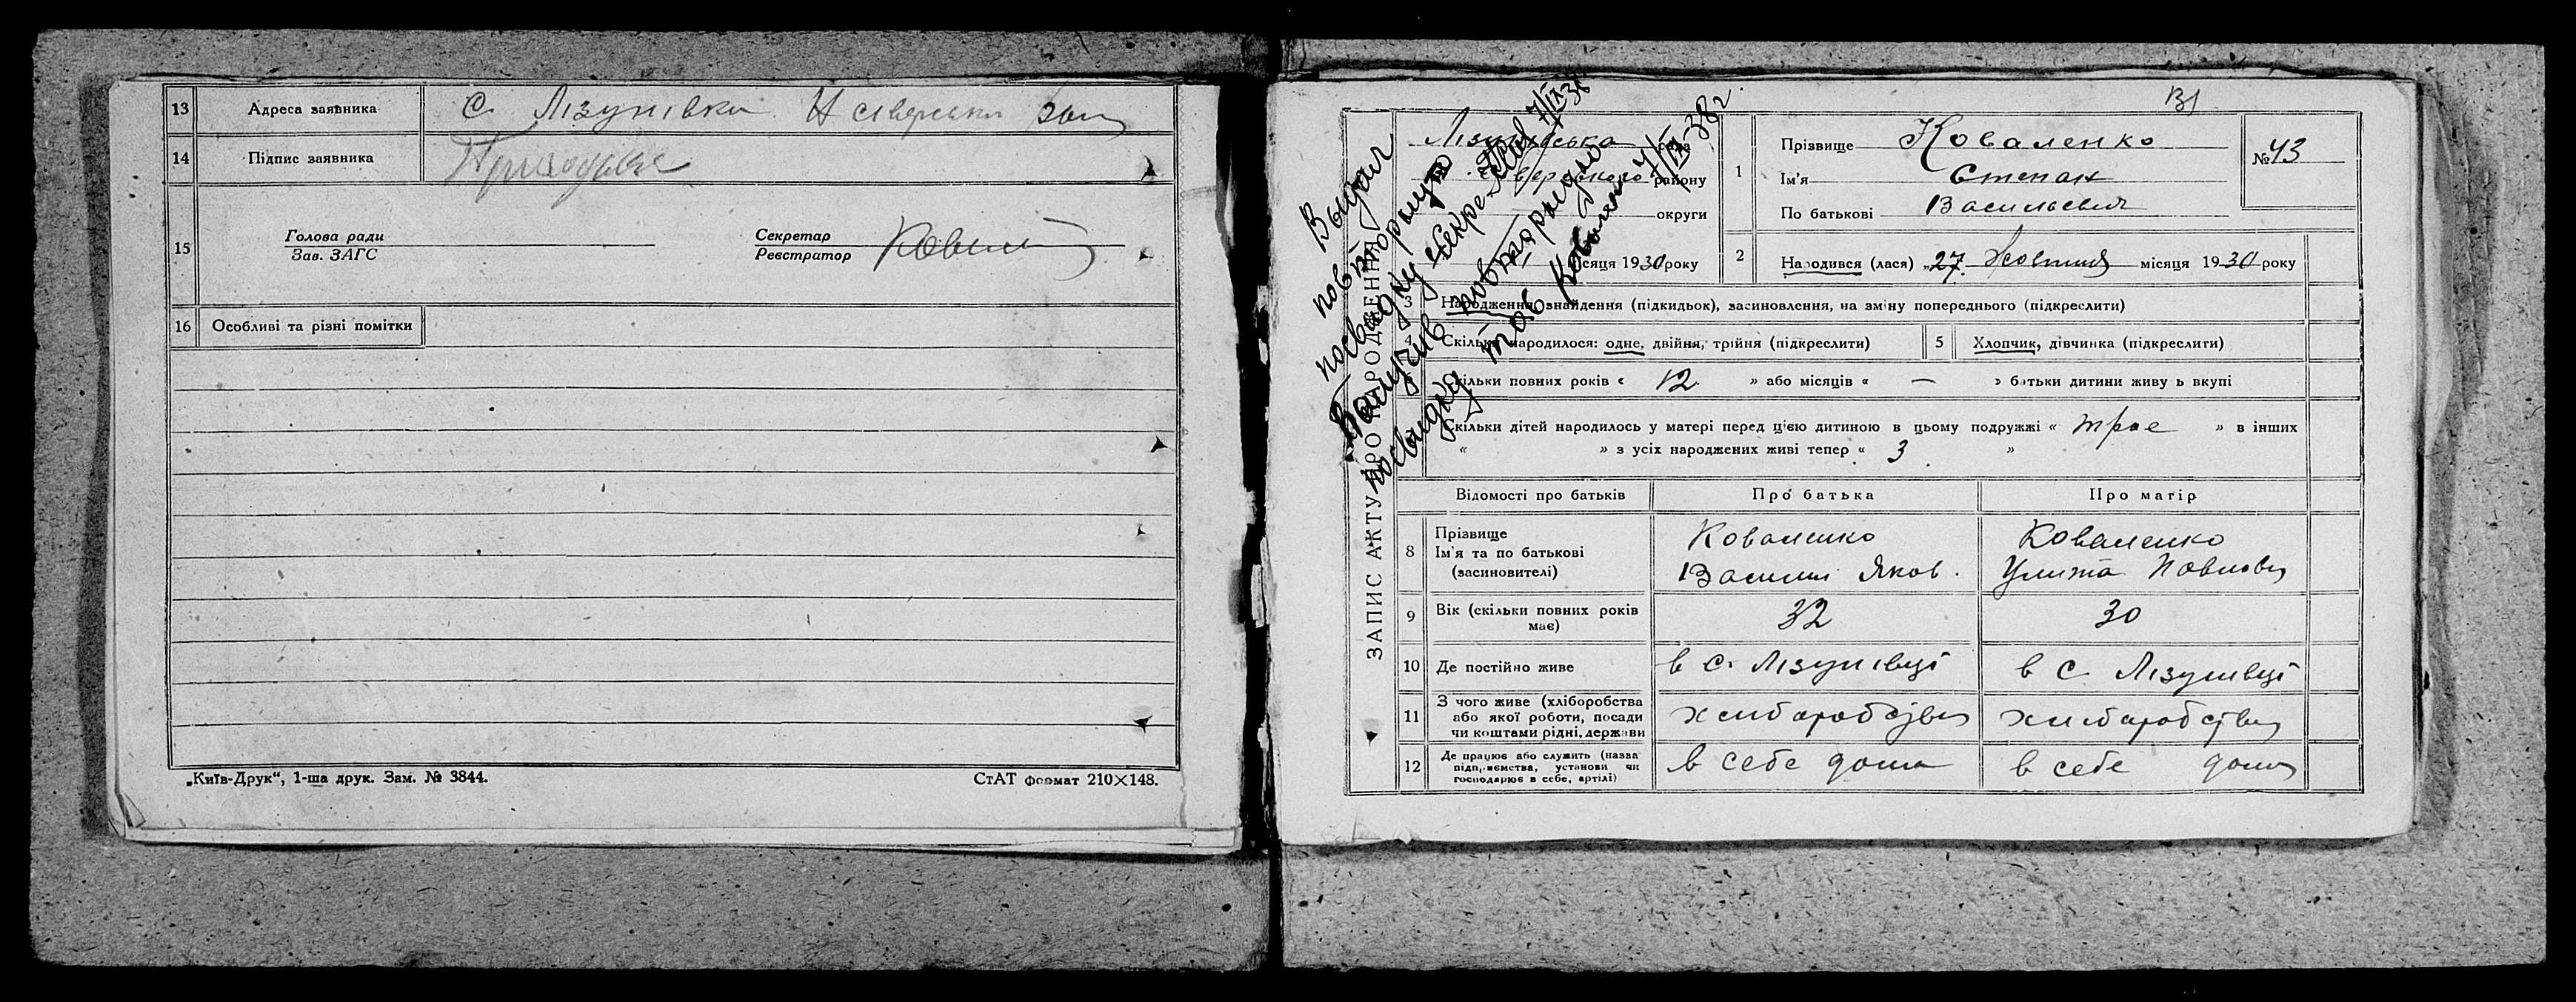 13 Адреса заявника С. Лізунівка Н сіверський
14 Підпис заявника
15 Голова ради Секретар
Зав. ЗАГС Реєстратор
16 Особливі та різні помітки
„Київ-Друк“, 1-ша друк. Зам. № 3844.
СтАТ формат 210×148.
131
ЗАПИС АКТУ ПРО НАРОДЖЕННЯ
Лізунівська рада
району
округи
місяця 1930 року
Выдал
повторную
секре 7/IX 38
повторную
7/IX-38г
1 Прізвище Коваленко
Ім'я Степан
По батькові Васильевич
№ 43
2 Народився (лася) „27 Жовтня місяця 1930 року
3 Народження, знайдення (підкидьок), засиновлення, на зміну попереднього (підкреслити)
4 Скільки народилося: одне, двійня, трійня (підкреслити)
5 Хлопчик, дівчинка (підкреслити)
Скільки повних років « 12 » або місяців « — » батьки дитини живуть вкупі
Скільки дітей народилось у матері перед цією дитиною в цьому подружжі « трое » в інших
« » з усіх народжених живі тепер « 3 »
Відомості про батьків Про батька Про матір
8 Прізвище Коваленко Коваленко
Ім'я та по батькові
(засиновителі) Василий Яков. Улита Павловн
9 Вік (скільки повних років має) 32 30
10 Де постійно живе в с. Лізунівці в с Лізунівці
11 З чого живе (хліборобства
або якої роботи, посади
чи коштами рідні, держави
12 Де працює або служить (назва
підприємства, установи чи
господарює в себе, артілі)
в себе дома в себе дома